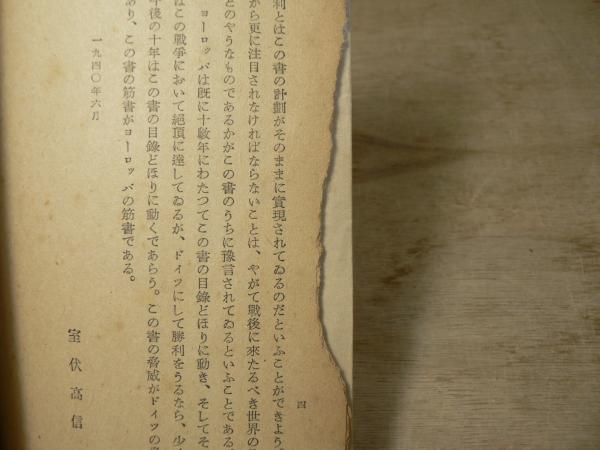 利とはこの書の計劃がそのままに實現されてゐるのだといふことができよう。
から更に注目されなければならないことは、やがて戰後に來たるべき世界の
どのやうなものであるかがこの書のうちに豫言されてゐるといふことである。
ヨーロッパは既に十數年にわたつてこの書の目錄どほりに動き、そしてそ
はこの戰爭において絕頂に達してゐるが、ドイツにして勝利をうるなら、少
後の十年はこの書の目錄どほりに動くであらう。この書の脅威がドイツの
り、この書の筋書がヨーロッパの筋書である。
一九四〇年六月
室伏高信
四